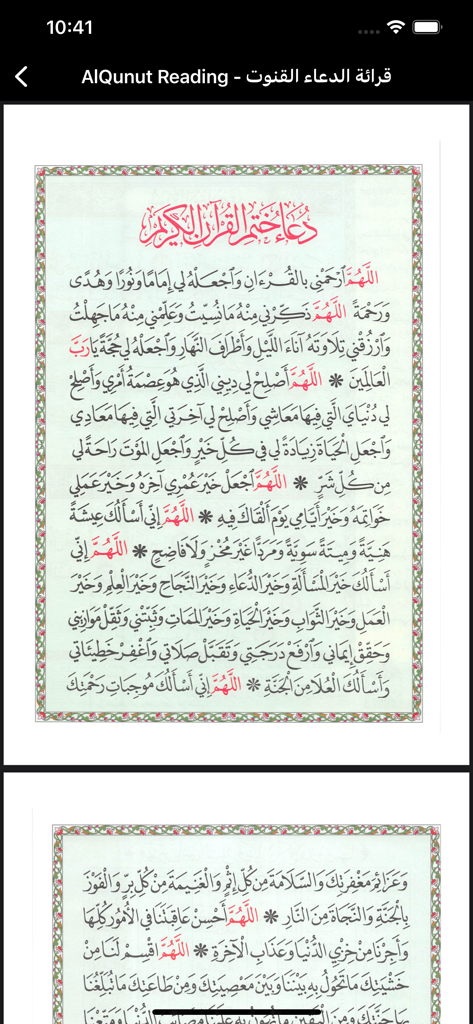 10:41
AlQunut Reading - قرائة الدعاء القنوت
دُعَاءُ خَتْمِ الْقُرْآنِ الْكَرِيمِ
اللَّهُمَّ ارْحَمْنِي بِالْقُرْءَانِ وَاجْعَلْهُ لِي إِمَامًا وَنُورًا وَهُدًى
وَرَحْمَةً اللَّهُمَّ ذَكِّرْنِي مِنْهُ مَا نُسِّيتُ وَعَلِّمْنِي مِنْهُ مَا جَهِلْتُ
وَارْزُقْنِي تِلَاوَتَهُ آنَاءَ اللَّيْلِ وَأَطْرَافَ النَّهَارِ وَاجْعَلْهُ لِي حُجَّةً يَا رَبَّ
الْعَالَمِينَ * اللَّهُمَّ أَصْلِحْ لِي دِينِي الَّذِي هُوَ عِصْمَةُ أَمْرِي وَأَصْلِحْ
لِي دُنْيَايَ الَّتِي فِيهَا مَعَاشِي وَأَصْلِحْ لِي آخِرَتِي الَّتِي فِيهَا مَعَادِي
وَاجْعَلِ الْحَيَاةَ زِيَادَةً لِي فِي كُلِّ خَيْرٍ وَاجْعَلِ الْمَوْتَ رَاحَةً لِي
مِنْ كُلِّ شَرٍّ * اللَّهُمَّ اجْعَلْ خَيْرَ عُمْرِي آخِرَهُ وَخَيْرَ عَمَلِي
خَوَاتِمَهُ وَخَيْرَ أَيَّامِي يَوْمَ أَلْقَاكَ فِيهِ * اللَّهُمَّ إِنِّي أَسْأَلُكَ عِيشَةً
هَنِيَّةً وَمِيتَةً سَوِيَّةً وَمَرَدًّا غَيْرَ مُخْزٍ وَلَا فَاضِحٍ * اللَّهُمَّ إِنِّي
أَسْأَلُكَ خَيْرَ الْمَسْأَلَةِ وَخَيْرَ الدُّعَاءِ وَخَيْرَ النَّجَاحِ وَخَيْرَ الْعِلْمِ وَخَيْرَ
الْعَمَلِ وَخَيْرَ الثَّوَابِ وَخَيْرَ الْحَيَاةِ وَخَيْرَ الْمَمَاتِ وَثَبِّتْنِي وَثَقِّلْ مَوَازِينِي
وَحَقِّقْ إِيمَانِي وَارْفَعْ دَرَجَتِي وَتَقَبَّلْ صَلَاتِي وَاغْفِرْ خَطِيئَاتِي
وَأَسْأَلُكَ الْعُلَا مِنَ الْجَنَّةِ * اللَّهُمَّ إِنِّي أَسْأَلُكَ مُوجِبَاتِ رَحْمَتِكَ
وَعَزَائِمَ مَغْفِرَتِكَ وَالسَّلَامَةَ مِنْ كُلِّ إِثْمٍ وَالْغَنِيمَةَ مِنْ كُلِّ بِرٍّ وَالْفَوْزَ
بِالْجَنَّةِ وَالنَّجَاةَ مِنَ النَّارِ * اللَّهُمَّ أَحْسِنْ عَاقِبَتَنَا فِي الْأُمُورِ كُلِّهَا
وَأَجِرْنَا مِنْ خِزْيِ الدُّنْيَا وَعَذَابِ الْآخِرَةِ * اللَّهُمَّ اقْسِمْ لَنَا مِنْ
خَشْيَتِكَ مَا تَحُولُ بِهِ بَيْنَنَا وَبَيْنَ مَعْصِيَتِكَ وَمِنْ طَاعَتِكَ مَا تُبَلِّغُنَا
بِهَا جَنَّتَكَ وَمِنَ الْيَقِينِ مَا تُهَوِّنُ بِهِ عَلَيْنَا مَصَائِبَ الدُّنْيَا وَمَتِّعْنَا